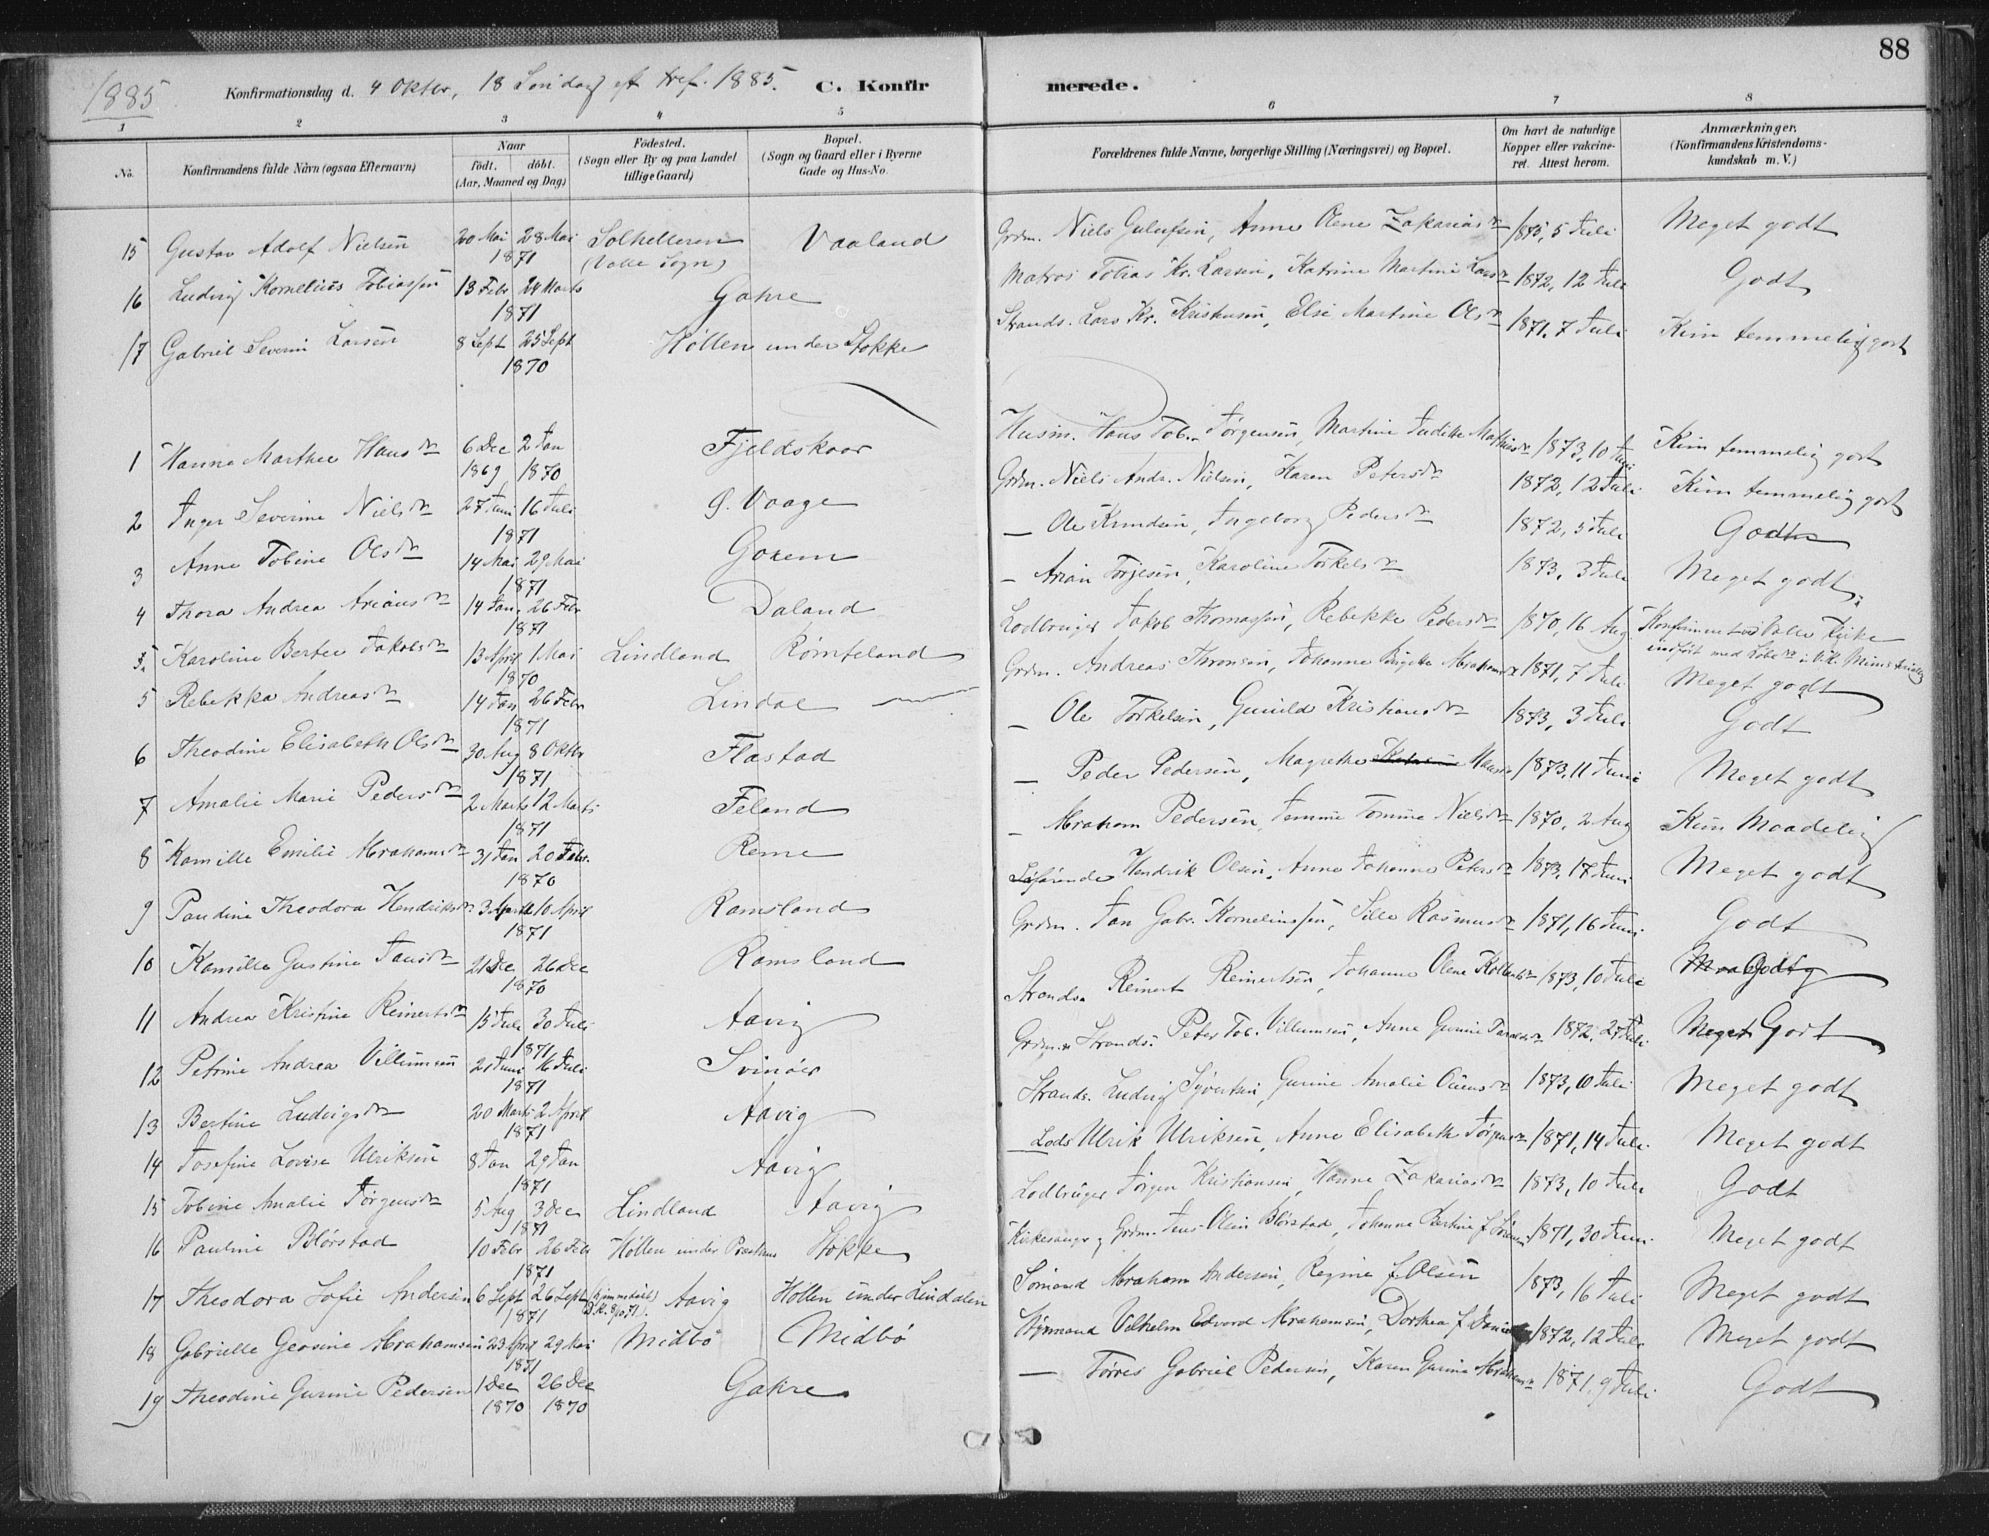 88
1885 Konfirmationsdag d. 4 Oktbr, 18 Søndag eft tref. 1885. C. Konfir merede.
1 2 3 4 5 6 7 8
No. Konfirmandens fulde Navn (ogsaa Efternavn) Naar født. døbt. (Aar, Maaned og Dag) Fødested. (Sogn eller By og paa Landet tillige Gaard) Bopæl. (Sogn og Gaard eller i Byerne Gade og Hus-No. Forældrenes fulde Navne, borgerlige Stilling (Næringsvei) og Bopæl. Om havt de naturlige Kopper eller vakcineret. Attest herom. Anmærkninger. (Konfirmandens Kristendomskundskab m. V.)
15 Gustav Adolf Nielsen 20 Mai 28 Mai 1871 Solhelleren (Valle Sogn) Vaaland Grdm. Niels Gulufsen, Anne Olene Zakariasdr 1875, 5 Juli Meget godt
16 Ludvig Kornelius Tobiassen 13 Febr 24 Marts 1871 Gahre Matros Tobias Kr. Larsen, Katrine Martine Larsdr 1872, 12 Juli Godt
17 Gabriel Severin Larsen 8 Sept 25 Sept 1870 Høllen under Stokke Strands. Lars Kr. Kristensen, Else Martine Olsdr 1871, 7 Juli Kun temmelig godt
1 Hanna Marthea Hansdr 6 Dec 1869 2 Jan 1870 Fjeldskaar Husm. Hans Tob. Jørgensen, Martine Juditte Mathiasdr 1873, 10 Juni Kun temmelig godt
2 Inger Severine Nielsdr 27 Juni 16 Juli 1871 Ø. Vaage Grdm. Niels Andr. Nielsen, Karen Petersdr 1872, 12 Juli Kun temmelig godt
3 Anne Tobine Olsdr 14 Mai 29 Mai 1871 Goxem — Ole Knudsen, Ingeborg Pedersdr 1872, 5 Juli Godt
4 Thora Andrea Ariansdr 14 Jan 26 Febr 1871 Daland — Arian Torjesen, Karoline Torkelsdr 1873, 3 Juli Meget godt
5. Karoline Bertee Jakobsdr 13 April 1 Mai 1870 Lindland Rømteland Lodbruger Jakob Thomassen, Rebekke Pedersdr 1870, 16 Aug Konfirmert ved Valle Kirke indført med Løbe
5 Rebekka Andreasdr 14 Jan 26 Febr 1871 Lindal Grdm. Andreas Thronsen, Johanne Birgitte Abrahamsdr 1871, 7 Juli Meget godt
6 Theodine Elisabeth Olsdr 30 Aug 8 Oktbr 1871 Flastad — Ole Torkelsen, Gunild Kristiansdr 1873, 3 Juli Godt
7 Amalie Marie Pedersdr 2 Marts 12 Marts 1871 Feland — Peder Pedersen, Magrethe 1873, 11 Juni Meget godt
8 Kamille Emilie Abrahamsdr 31 Jan 20 Febr. 1870 Reme — Abraham Pedersen, Tomine Nielsdr 1870, 2 Aug Kun Maadelig
9 Paudine Theodora Hendriksdr 3 April 10 April 1871 Ramsland Søfarende Hendrik Olsen, Anne Johanne Petersdr 1873, 17 Juni Meget godt
10 Kamilla Gustine Jansdr 21 Dec 26 Dec 1870 Ramsland Grdm. Jan Gabr. Korneliussen, Sille Rasmusdr 1871, 16 Juni Godt
11 Andrea Kristine Reinertsdr 15 Juli 30 Juli 1871 Aavig Strands. Reinert Reinertsen, Johanne Olene 1873, 10 Juli Godt
12 Petrine Andrea Villumsen 21 Juni 16 Juli 1871 Svinøer Grdm. & Strands. Peter Tob. Villumsen, Anne Gurine 1872, 27 Juli Meget Godt
13 Bertine Ludvigsdr 20 Marts 2 April 1871 Aavig Strands. Ludvig Syvertsen, Gurine Amalie 1873, 10 Juli Meget godt
14 Josefine Lovise Ulriksen 8 Jan 29 Jan 1871 Aavig Lods Ulrik Ulriksen, Anne Elisabeth Jørgensdr 1871, 14 Juli Meget godt
15 Tobine Amalie Jørgensdr 5 Aug 3 Dec 1871 Lindland Aavig Lodbruger Jørgen Kristiansen, Hanne Zakariasdr 1873, 10 Juli Godt
16 Pauline Blørstad 10 Febr 26 Febr 1871 Høllen under Stokke Kirkesanger og Grdm. Jens Olsen Blørstad, Johanne Bertine f. 1871, 30 Juni Meget godt
17 Theodora Sofie Andersen 6 Sept 26 Sept 1871 (hjemmedøbt) Aavig Høllen under Lindalen Sømand Abraham Andersen, Regine f. Olsen 1873, 16 Juli Meget godt
18 Gabrielle Georine Abrahamsen 23 April 29 Mai 1871 Midbø Midbø Styrmand Vilhelm Edvard Abrahamsen, Dorthea f. 1872, 12 Juli Meget godt
19 Theodine Gurine Pedersen 1 Dec 1870 26 Dec 1870 Gahre — Tørres Gabriel Pedersen, Karen Gurine Abrahamsdr 1871, 9 Juli Godt